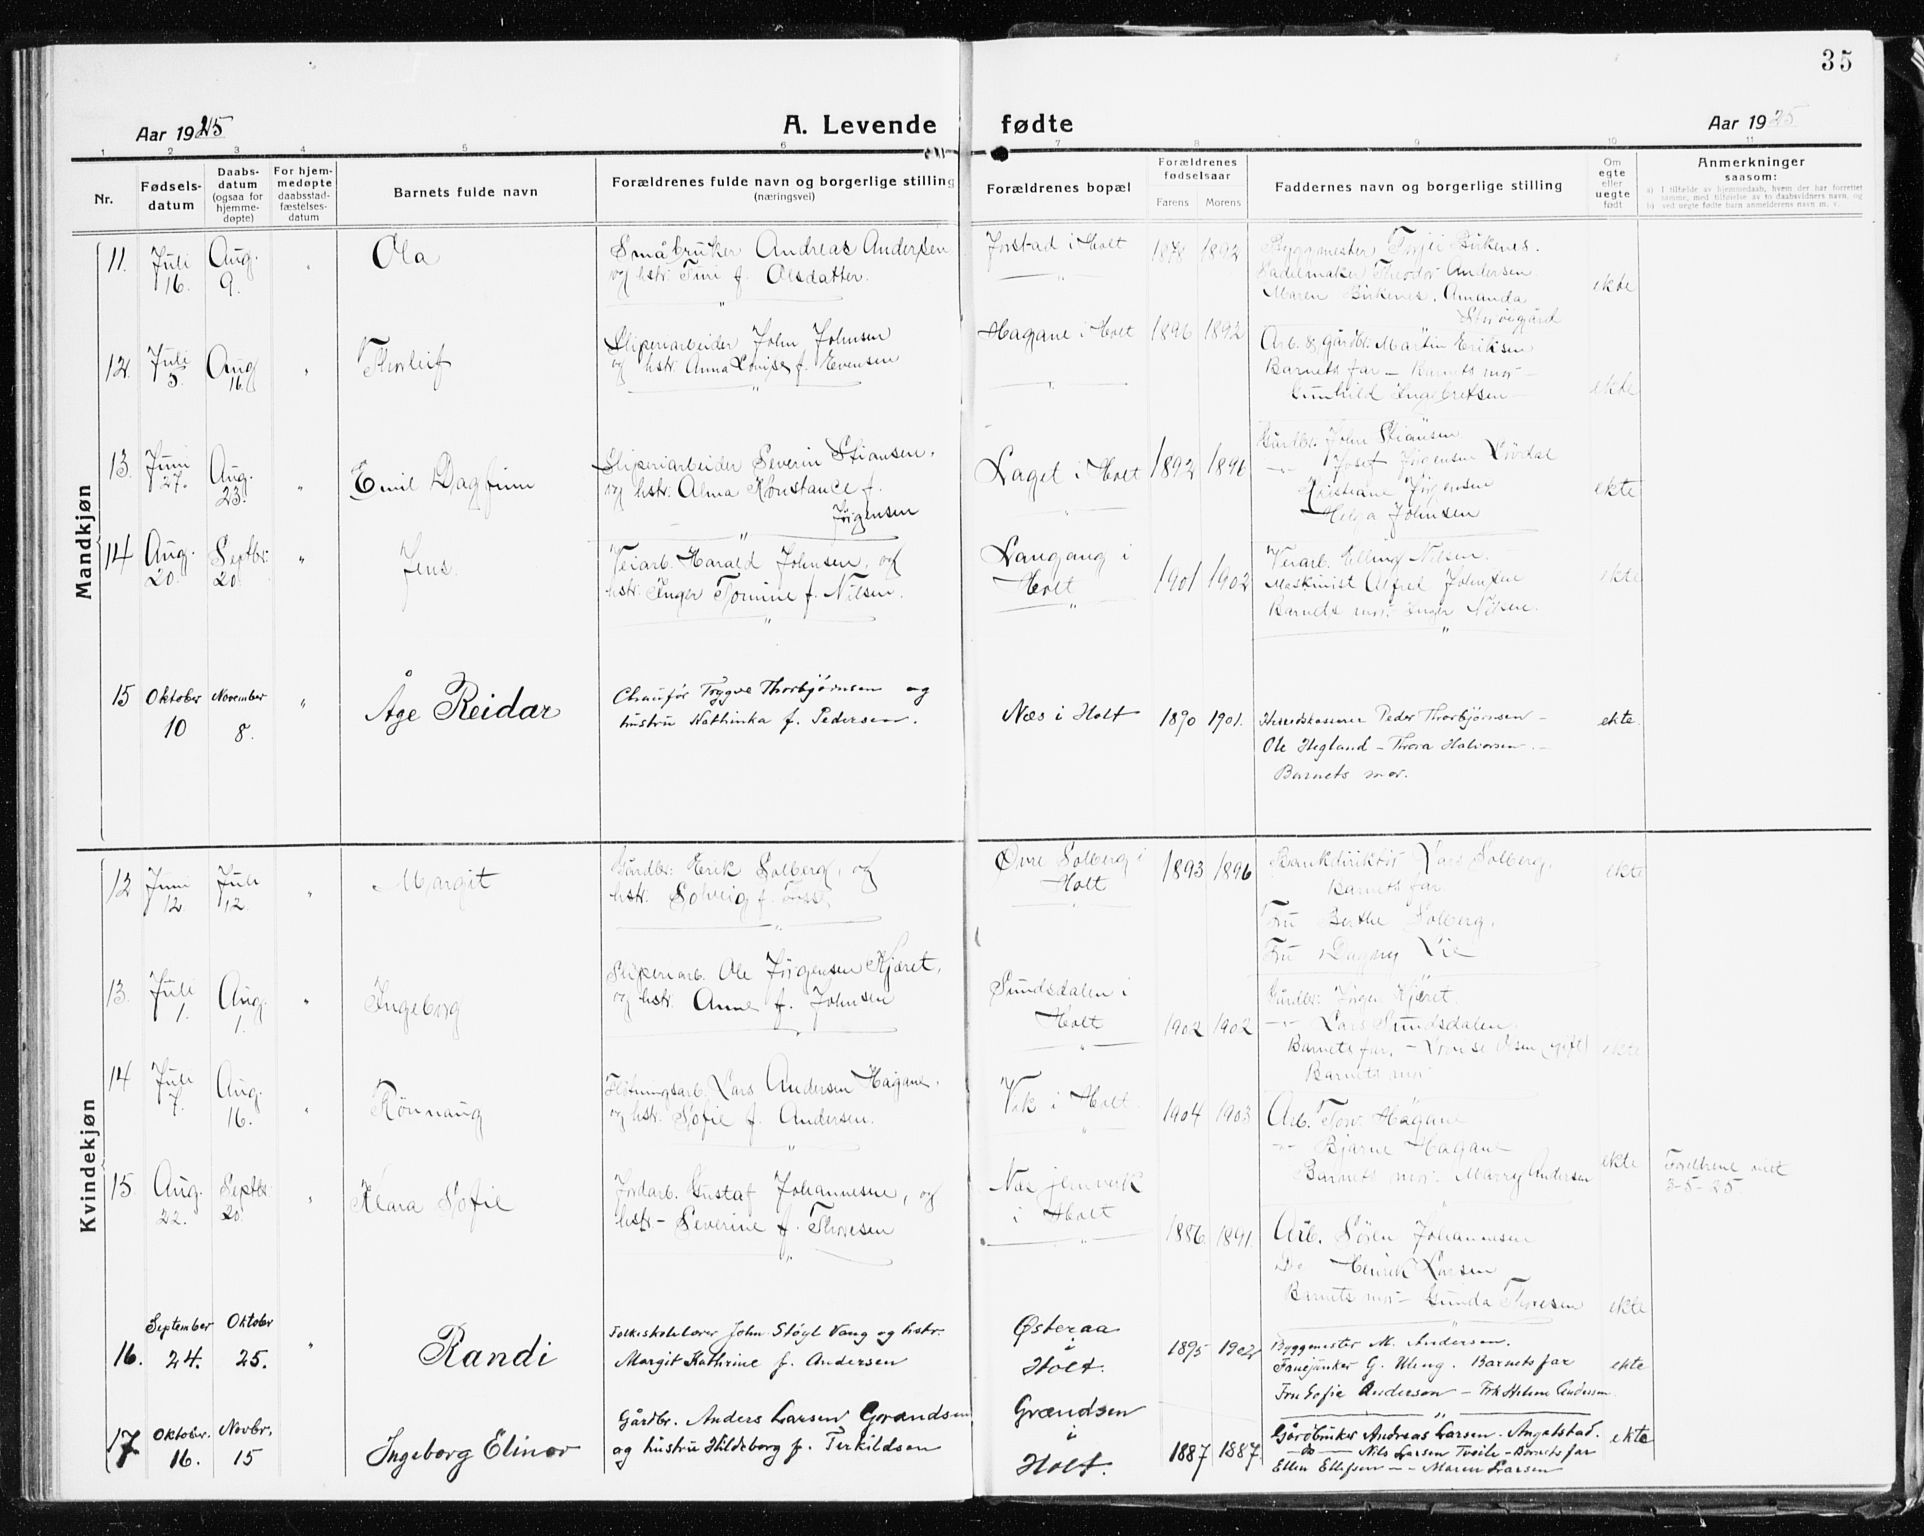 35
Aar 1925
A. Levende fødte
Aar 1925
1 2 3 4 5 6 7 8 9 10 11
Nr.
Fødsels-
datum
Daabs-
datum
(ogsaa for
hjemme-
døpte)
For hjem-
medøpte
daabsstad-
fæstelses-
datum
Barnets fulde navn
Forældrenes fulde navn og borgerlige stilling
(næringsvei)
Forældrenes bopæl
Forældrenes
fødselsaar
Farens Morens
Faddernes navn og borgerlige stilling
Om
egte
eller
uegte
født
Anmerkninger
saasom:
a) I tilfælde av hjemmedaab, hvem der har forrettet
samme, med tilføielse av to daabsvidners navn, og
b) ved uegte fødte barn anmelderens navn m. v.
Mandkjøn
11. Juli 16. Aug. 9. " Ola
Småbruker Andreas Andersen
og hstr. Tini f. Olsdatter.
Jorstad i Holt 1878 1892
Byggmester Terjei Birkenes.
Sadelmaker Theodor Andersen
Maren Birkenes. Amanda
ekte
12. Juli 5. Aug 16. " Thorleif
Sliperiarbeider John Johnsen
og hstr. Anna Lovise f. Evensen
Hagane i Holt 1896 1892
Arb. & gårdbr. Martin Eriksen
Barnets far — Barnets mor —
Gunhild Ingebretsen
ekte
13. Juni 27. Aug. 23. " Emil Dagfinn
Sliperiarbeider Severin Stiansen,
og hstr. Alma Konstance f.
Jørgensen
Laget i Holt 1892 1896
Gårdbr. John Stiansen
-"- Josef Jørgensen Lövdal
Kristiane Jørgensen
Helga Johnsen
ekte
14 Aug. 20. Septbr. 20 " Jens.
Veiarb. Harald Johnsen, og
hstr. Inger Tomine f. Nilsen.
Langang i
Holt 1901 1902
Veiarb. Elling Nilsen.
Maskinist Alfred Johnsen
Barnets mor. Inger Nilsen.
ekte
15 Oktober 10 November 8. " Åge Reidar
Chauför Trygve Thorbjørnsen og
hustru Kathinka f. Pedersen.
Næs i Holt 1890 1901.
Herredskasserer Peder Thorbjørnsen –
Ole Hegland – Thora Halvorsen. –
Barnets mor.
ekte.
Kvindekjøn
12 Juni 12. Juli 12. " Margit
Gårdbr. Erik Solberg, og
hstr. Solveig f.
Øvre Solberg i
Holt 1893 1896
Bankdirektör Lars Solberg.
Barnets far.
Fru Berthe Solberg.
Fru Dagny Lie
ekte
13. Juli 1. Aug. 1. " Ingeborg
Sliperiarb. Ole Jørgensen Kjæret,
og hstr. Anne f. Johnsen
Sundsdalen i
Holt 1902 1902
Gårdbr. Jørgen Kjæret.
-"- Lars Sundsdalen.
Barnets far. – Lovise Olsen (gift)
Barnets mor
ekte
14 Juli 7. Aug. 16. " Rönnaug
Flötningsarb. Lars Andersen Hagane.
og hstr. Sofie f. Andersen.
Vik i Holt 1904 1903
Arb. Tor. Hagane
-"- Bjarne Hagane
Barnets mor. Marry Andersen
ekte
Foreldrene viet
3-5-25.
15 Aug. 22. Septbr. 20. " Klara Sofie
Jordarb. Gustaf Johannesen, og
hstr. – Severine f. Thoresen
Næs jernverk
i Holt 1886. 1891.
Arb. Sören Johannesen
Do Henrik Larsen
Barnets mor – Gunda Thoresen
ekte
16. September 24. Oktober 25. " Randi
Folkeskolelærer John Stöyl Vang og hstr.
Margit Kathrine f. Andersen
Østeraa
i
Holt. 1895 1902
Byggmester M. Andersen.
Fanejunker G. Uleng. Barnets far
Fru Sofie Anderson – Frk Helene Andersen.
ekte
17 Oktober. 16. Novbr. 15 Ingeborg Elinor
Gårdbr. Anders Larsen Grændsen
og hustru Hildeborg f. Terkildsen
Grændsen
i
Holt. 1887 1887.
Gårdbruker Andreas Larsen. Angelstad.
— do — Nils Larsen Tveite – Barnets far
Ellen Ellefsen – – Maren Larsen
ekte